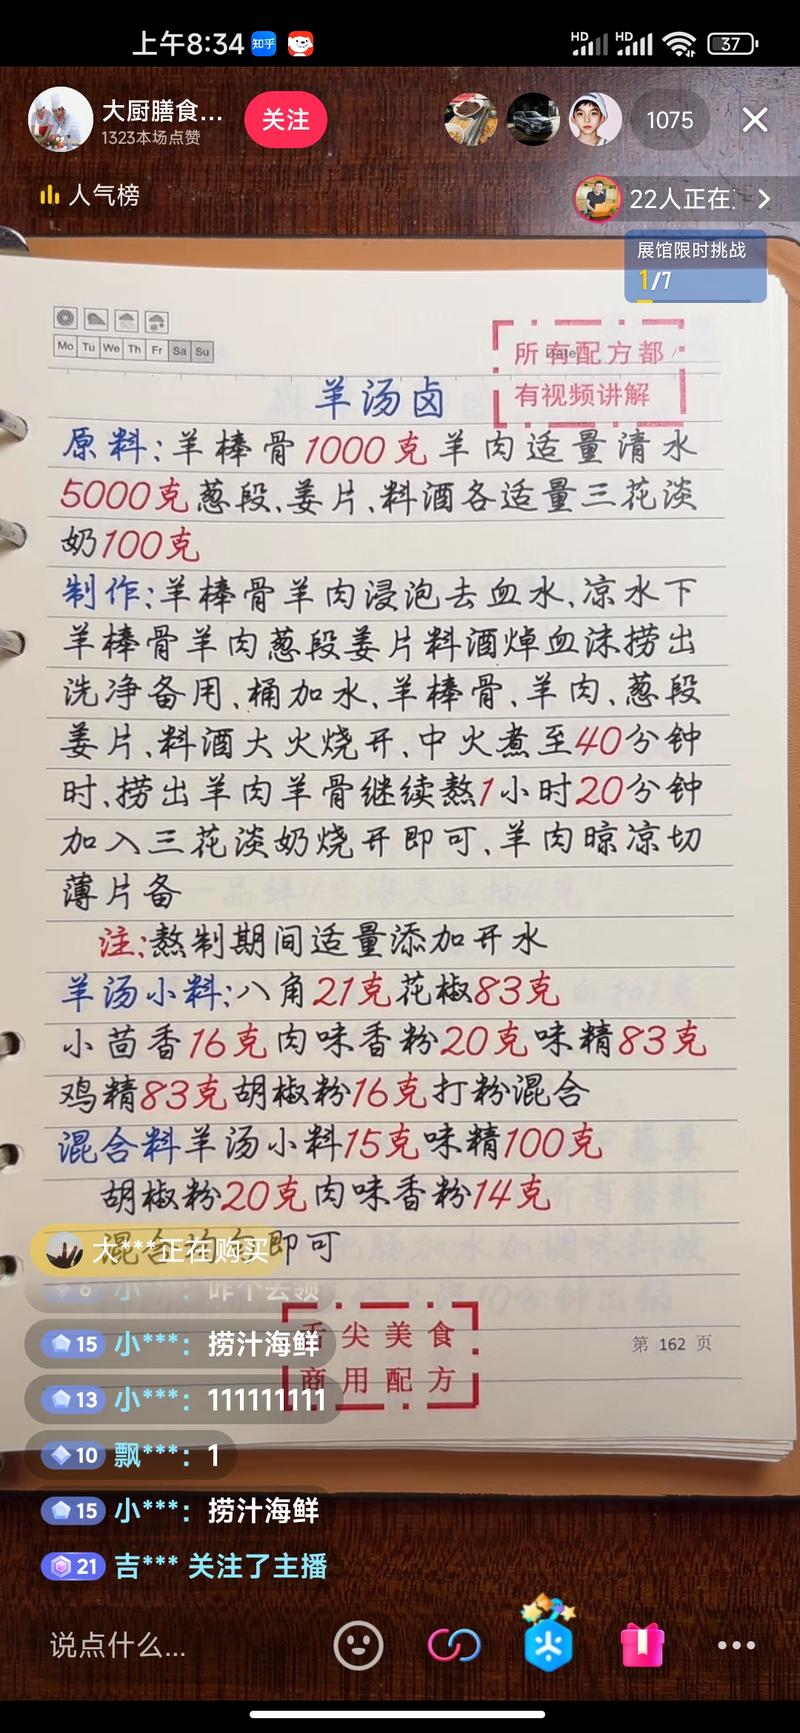 上午8:34 知乎 HD HD 37
大厨膳食... 关注 1075
1323本场点赞
人气榜 22人正在
展馆限时挑战
1/7
Mo Tu We Th Fr Sa Su
Date
所有配方都
有视频讲解
羊汤卤
原料:羊棒骨1000克羊肉适量清水
5000克葱段、姜片、料酒各适量三花淡
奶100克
制作:羊棒骨羊肉浸泡去血水、凉水下
羊棒骨羊肉葱段姜片料酒焯血沫捞出
洗净备用、桶加水、羊棒骨、羊肉、葱段
姜片、料酒大火烧开、中火煮至40分钟
时、捞出羊肉羊骨继续熬1小时20分钟
加入三花淡奶烧开即可、羊肉晾凉切
薄片备
注:熬制期间适量添加开水
羊汤小料:八角21克花椒83克
小茴香16克肉味香粉20克味精83克
鸡精83克胡椒粉16克打粉混合
混合料羊汤小料15克味精100克
胡椒粉20克肉味香粉14克
混合均匀即可
大***正在购买
6 小***: 咋个去领
舌尖美食
商用配方
第 162 页
15 小***: 捞汁海鲜
13 小***: 111111111
10 飘***: 1
15 小***: 捞汁海鲜
21 吉*** 关注了主播
说点什么...